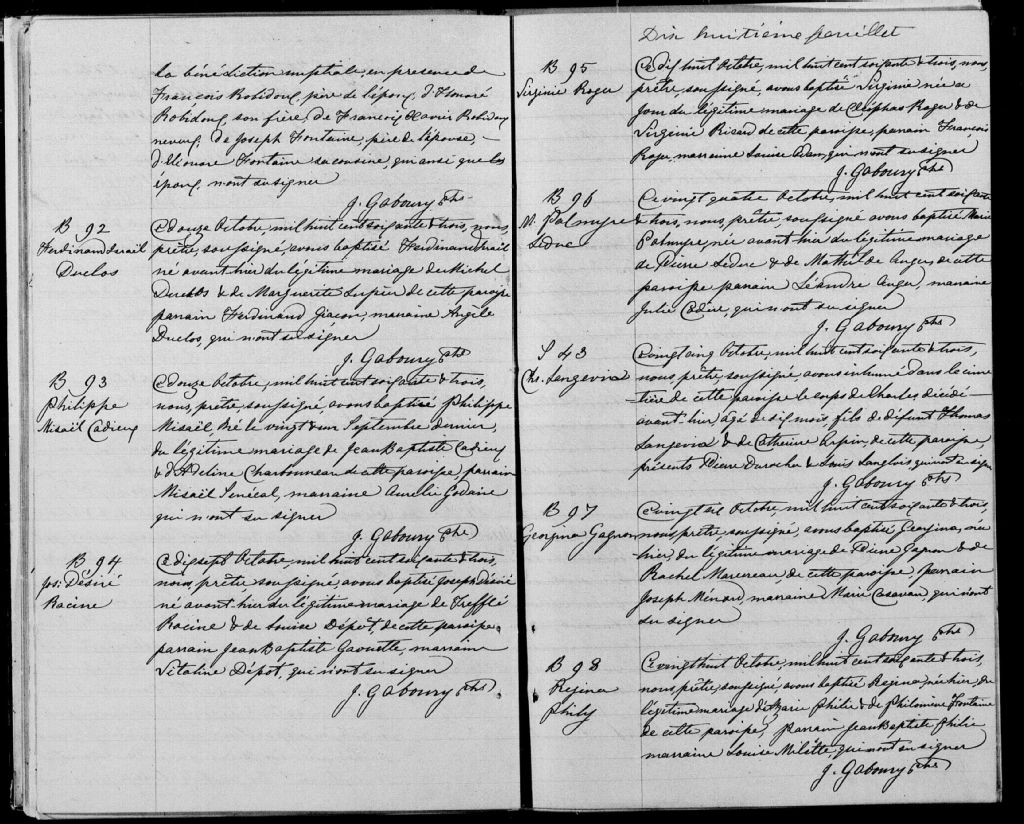 la bénédiction nuptiale, en présence de
François Robidoux, père de l'époux, d'Honoré
Robidoux, son frère, de François Xavier Robidoux
neveux, de Joseph Fontaine, père de l'épouse,
d'Eléonore Fontaine sa cousine, qui ainsi que les
époux, n'ont su signer
J. Gaboury Ptre
B 92
Ferdinand
Duclos
Ce douze Octobre, mil huit cent soixante & trois, nous,
prêtre, soussigné, avons baptisé Ferdinand
né avant hier du légitime mariage de Michel
Duclos & de Marguerite de cette paroisse
parrain Ferdinand marraine Angèle
Duclos, qui n'ont su signer
J. Gaboury Ptre
B 93
Philippe
Misaël Cadieux
Ce douze Octobre, mil huit cent soixante & trois,
nous, prêtre, soussigné avons baptisé Philippe
Misaël né le vingt & un Septembre dernier,
du légitime mariage de Jean Baptiste Cadieux
& d'Adeline Charbonneau de cette paroisse, parrain
Misaël Senécal, marraine Aurélie
qui n'ont su signer
J. Gaboury Ptre
B 94
Jos: Désiré
Racine
Ce dix sept Octobre, mil huit cent soixante & trois,
nous, prêtre soussigné, avons baptisé Joseph Désiré
né avant hier du légitime mariage de Trefflé
Racine & de Louise Dépot, de cette paroisse
parrain Jean Baptiste Gaouette, marraine
Vitaline Dépot, qui n'ont su signer
J. Gaboury Ptre
Dix huitième feuillet
B 95
Virginie Roger
Ce dix huit Octobre, mil huit cent soixante & trois, nous,
prêtre, soussigné, avons baptisé Virginie née ce
jour du légitime mariage de Cléophas Roger & de
Virginie Ricard de cette paroisse, parrain François
Roger, marraine Louise Adam, qui n'ont su signer
J. Gaboury Ptre
B 96
M. Palmyre
Leduc
Ce vingt quatre Octobre, mil huit cent soixante
& trois, nous, prêtre, soussigné avons baptisé Marie
Palmyre, née avant hier du légitime mariage
de Pierre Leduc & de Mathilde Auger, de cette
paroisse parrain Léandre Auger, marraine
Julie qui n'ont su signer
J. Gaboury Ptre
S 43
Chs. Langevin
Ce vingt cinq Octobre, mil huit cent soixante & trois,
nous, prêtre, soussigné, avons inhumé dans le cime
tière de cette paroisse le corps de Charles décédé
avant hier, âgé de six mois, fils de défunt Thomas
Langevin & de Catherine Arpin, de cette paroisse,
présents Pierre Durocher & Louis Langlois qui n'ont su signer
J. Gaboury Ptre
B 97
Georgina Gagnon
Ce vingt six Octobre, mil huit cent soixante & trois,
nous, prêtre, soussigné, avons baptisé Georgina, née
hier, du légitime mariage de Pierre Gagnon & de
Rachel de cette paroisse parrain
Joseph Ménard, marraine Marie Casavan, qui n'ont
su signer
J. Gaboury Ptre
B 98
Regina
Phily
Ce vingt huit Octobre, mil huit cent soixante & trois,
nous, prêtre, soussigné, avons baptisé Regina, née hier, du
légitime mariage de Philie & de Philomène Fontaine
de cette paroisse, parrain Jean Baptiste Philie
marraine Louise Milette, qui n'ont su signer
J. Gaboury Ptre